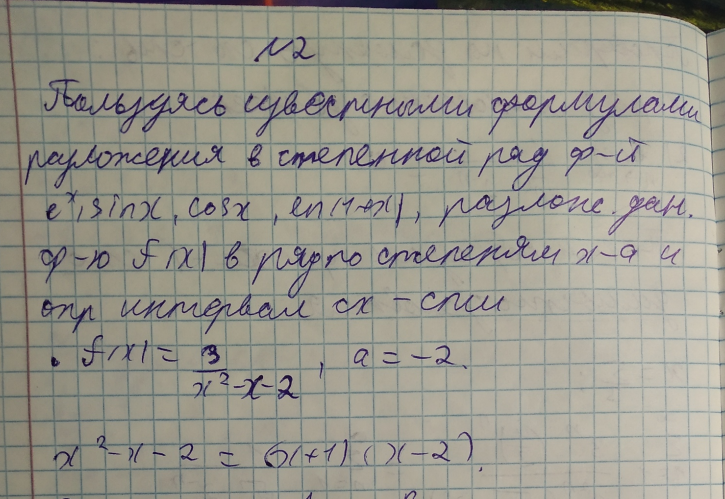 N2
Пользуясь известными формулами
разложения в степенной ряд ф-й
eˣ, sinx, cosx, ln(1+x), разлож. дан.
ф-ю f(x) в ряд по степеням x-a и
опр интервал сх-сти
• f(x) = 3/(x²-x-2), a = -2.
x²-x-2 = (x+1)(x-2).